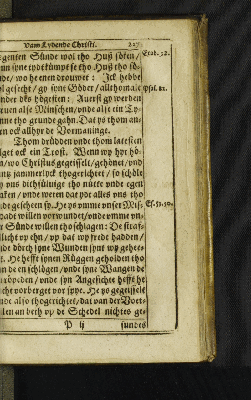 Vam Lydende Christi.
genten Sünde wol tho Huß söken/
Esab. 32.
unde/ wo he enen drouwet: Ick hebbe
wol gesecht/ gy synt Gödder/ allthomale
Psal. 82.
Kinder des högesten: Auerst gy werden
steruen alse Minschen/ vnde alse ein Ty-
ranne tho grunde gahn. Dat ys thom an-
dern ock allhyr de Vormaninge.
Thom drüdden vnde thom latesten
volget ock ein Trost. Wenn wy hyr hö-
ren/ wo Christus gegeisselt/ gehönet/ vnd
gantz jammerlyck thogerichtet/ so schöle
wy vns dithsüluige tho nütte vnde egen
maken/ vnde weten dat ydt alles vns tho
gude gescheen sy. He ys vmme vnser Mis-
Es. 53. 50.
sedade willen vorwundet/ vnde vmme vn-
ser Sünde willen thoslagen: De straf-
fe licht vp ehn/ vp dat wy frede hadden/
vnde dörch syne Wunden synt wy gehey-
let. He hefft synen Rüggen geholden tho
den de en schlögen/ vnde syne Wangen de
en röpeden/ vnde syn Angesichte hefft he
nicht vorberget vor spye. He ys gegeisselt
vnde also thogerichtet/ dat van der Voet-
salen an beth vp de Schedel nichtes ge-
P ij
sundes